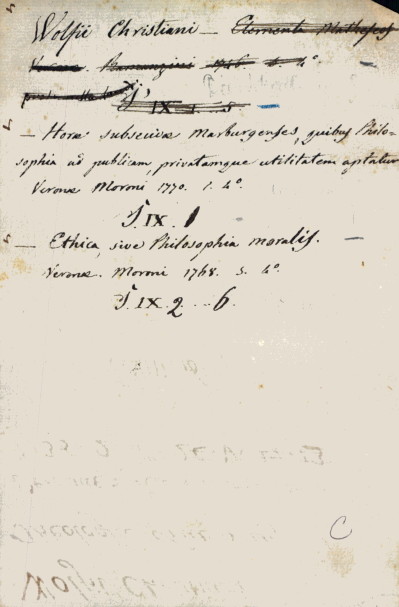 Wolfii Christiani — Elementa Matheseos
Veronæ. Ramanzini 1746 4.º
T. IX
— Horæ subsecivæ Marburgenses, quibus Philo-
sophia ad publicam, privatamque utilitatem aptatur
Veronæ Moroni 1770. 1. 4.º
T. IX. 1
— Ethica, sive Philosophia moralis. —
Veronæ. Moroni 1768. 5. 4.º
T. IX. 2 .. 6.
C